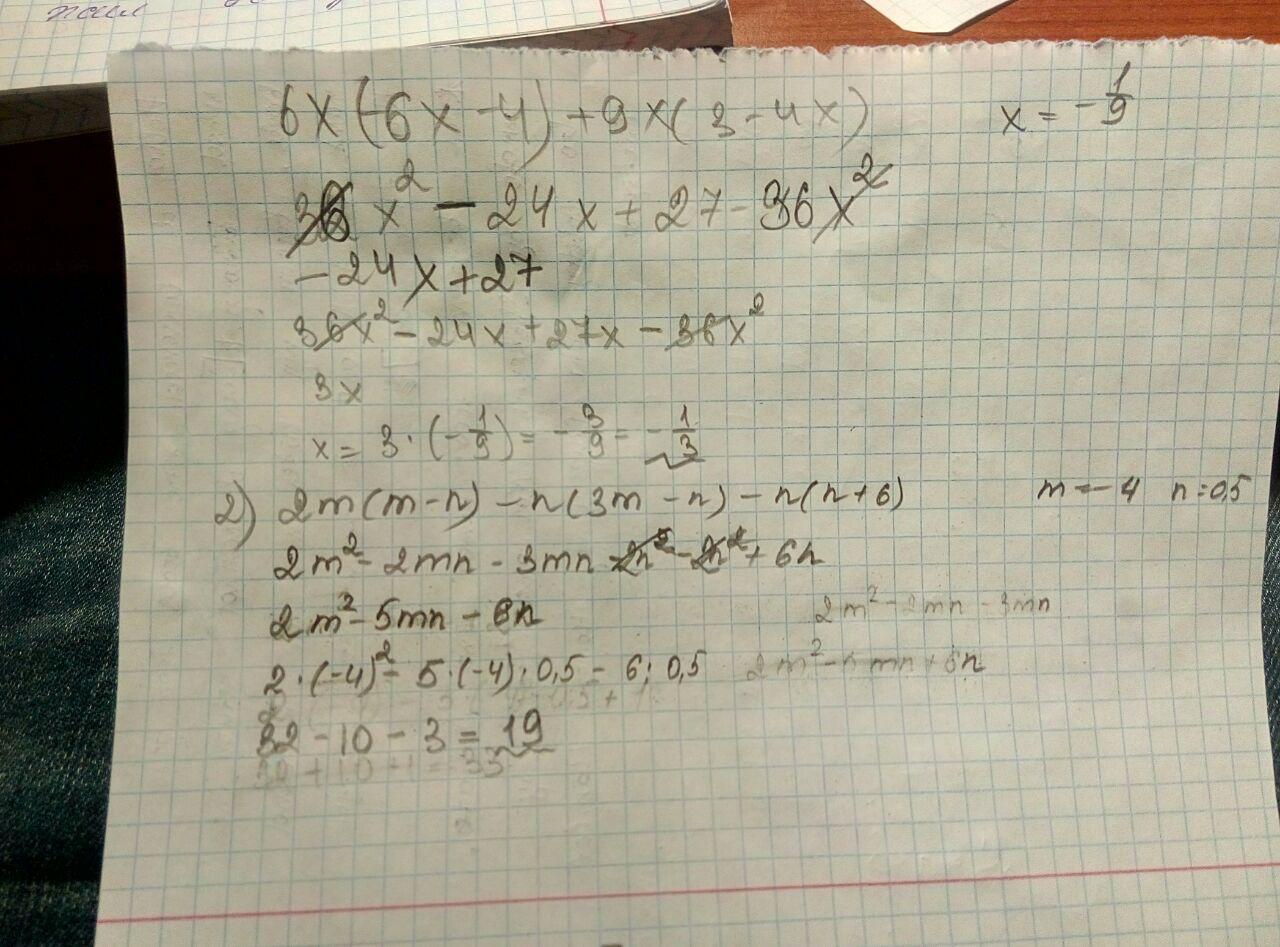 6x(-6x-4)+9x(3-4x) x=-1/9
36x²-24x+27-36x²
-24x+27
36x²-24x+27x-36x²
3x
x=3·(-1/9)=-3/9=-1/3
2) 2m(m-n)-n(3m-n)-n(n+6) m=-4 n=0,5
2m²-2mn-3mn-2n²-2n²+6n
2m²-5mn-6n
2m²-2mn-3mn
2·(-4)²-5·(-4)·0,5-6:0,5
32-10-3=19
30+10+1=33